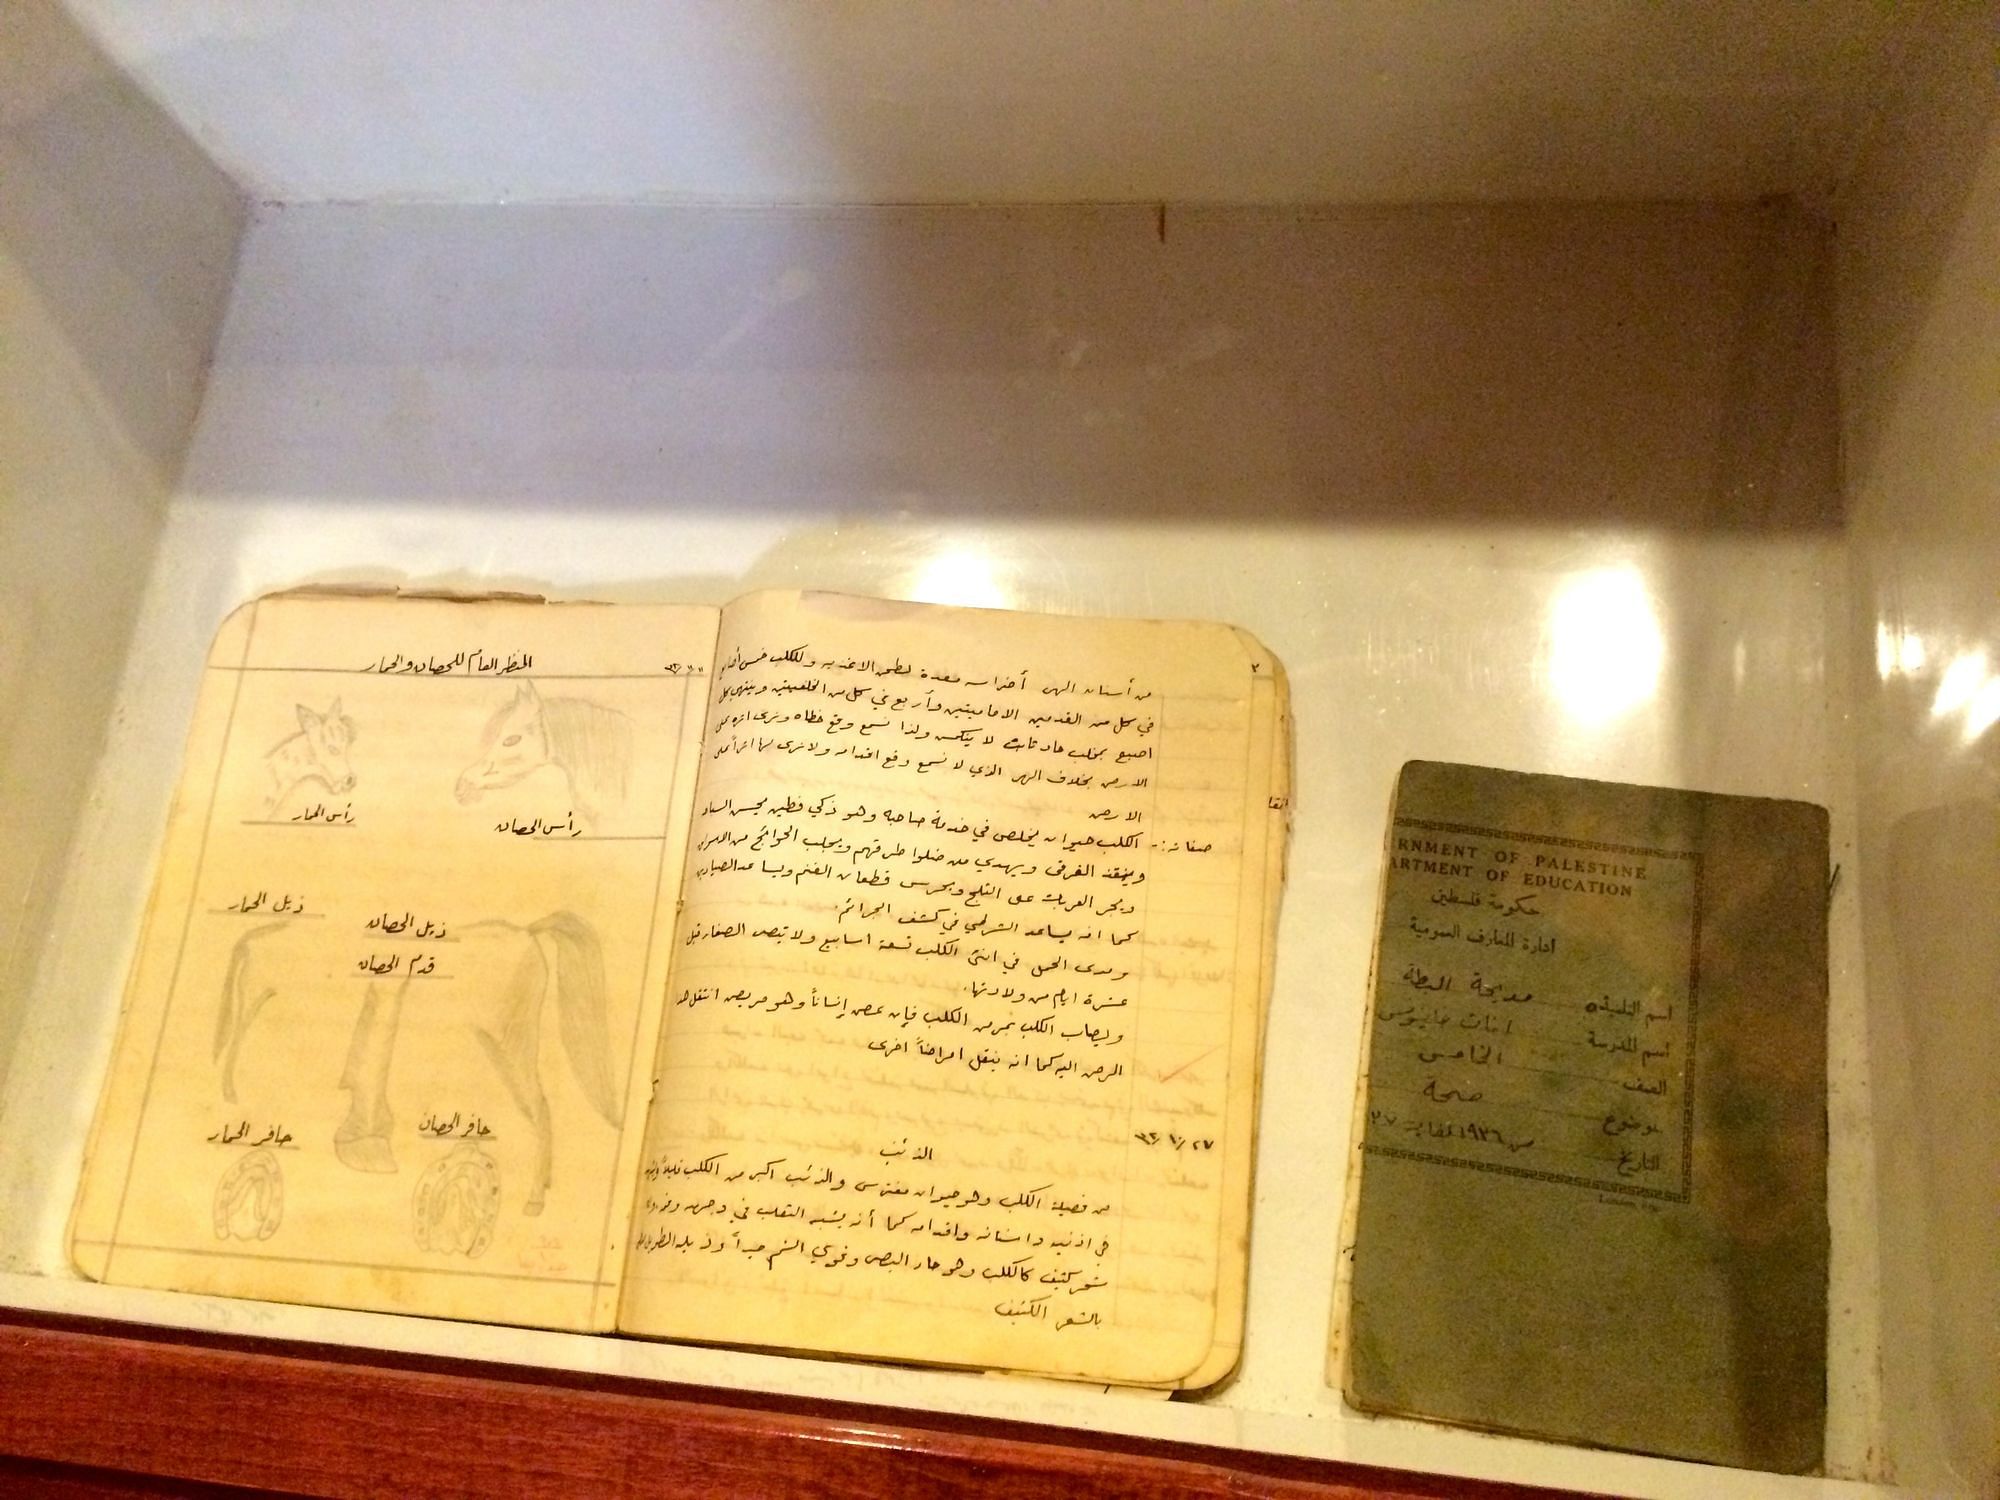 المنظر العام للحصان والحمار
رأس الحمار
رأس الحصان
ذيل الحمار
ذيل الحصان
قدم الحصان
حافر الحمار
حافر الحصان
٣
من أسنان الهر أضراسه معدة لطحن الاغذيه وللكلب خمس أصابع
في كل من القدمين الاماميتين وأربع في كل من الخلفيتين وينتهي كل
اصبع بمخلب حاد ثابت لا ينكمش ولذا نسمع وقع خطاه ونرى اثره على
الارض بخلاف الهر الذي لا نسمع وقع اقدامه ولا نرى لها اثراً على
الارض
صفاته :- الكلب حيوان يخلص في خدمة صاحبه وهو ذكي فطين يحسن السباحة
وينقذ الغرقى ويهدي من ضلوا طرقهم ويجلب الحوائج من
ويجر العربات على الثلج ويحرس قطعان الغنم ويساعد الصيادين
كما انه يساعد الشرطي في كشف الجرائم.
ومدى الحمل في انثى الكلب تسعة اسابيع ولا تبصر الصغار قبل
عشرة ايام من ولادتها.
ويصاب الكلب بمرض الكلب فإن عض إنساناً وهو مريض انتقل هذا
المرض اليه كما انه ينقل امراضاً اخرى
٢٧/١٠/٣٢
الذئب
من فصيلة الكلب وهو حيوان مفترس والذئب اكبر من الكلب قليلاً
في اذنيه واسنانه واقدامه كما أنه يشبه الثعلب في وجهه
شعر كثيف كالكلب وهو حاد البصر وقوي الشم جداً وذيله الطويل
بالشعر الكثيف
RNMENT OF PALESTINE
ARTMENT OF EDUCATION
حكومة فلسطين
ادارة المعارف العمومية
اسم التلميذه مديحة البطة
اسم المدرسة اناث
الصف الخامس
موضوع صحة
التاريخ من ١٩٣٦ لغاية ٣٧